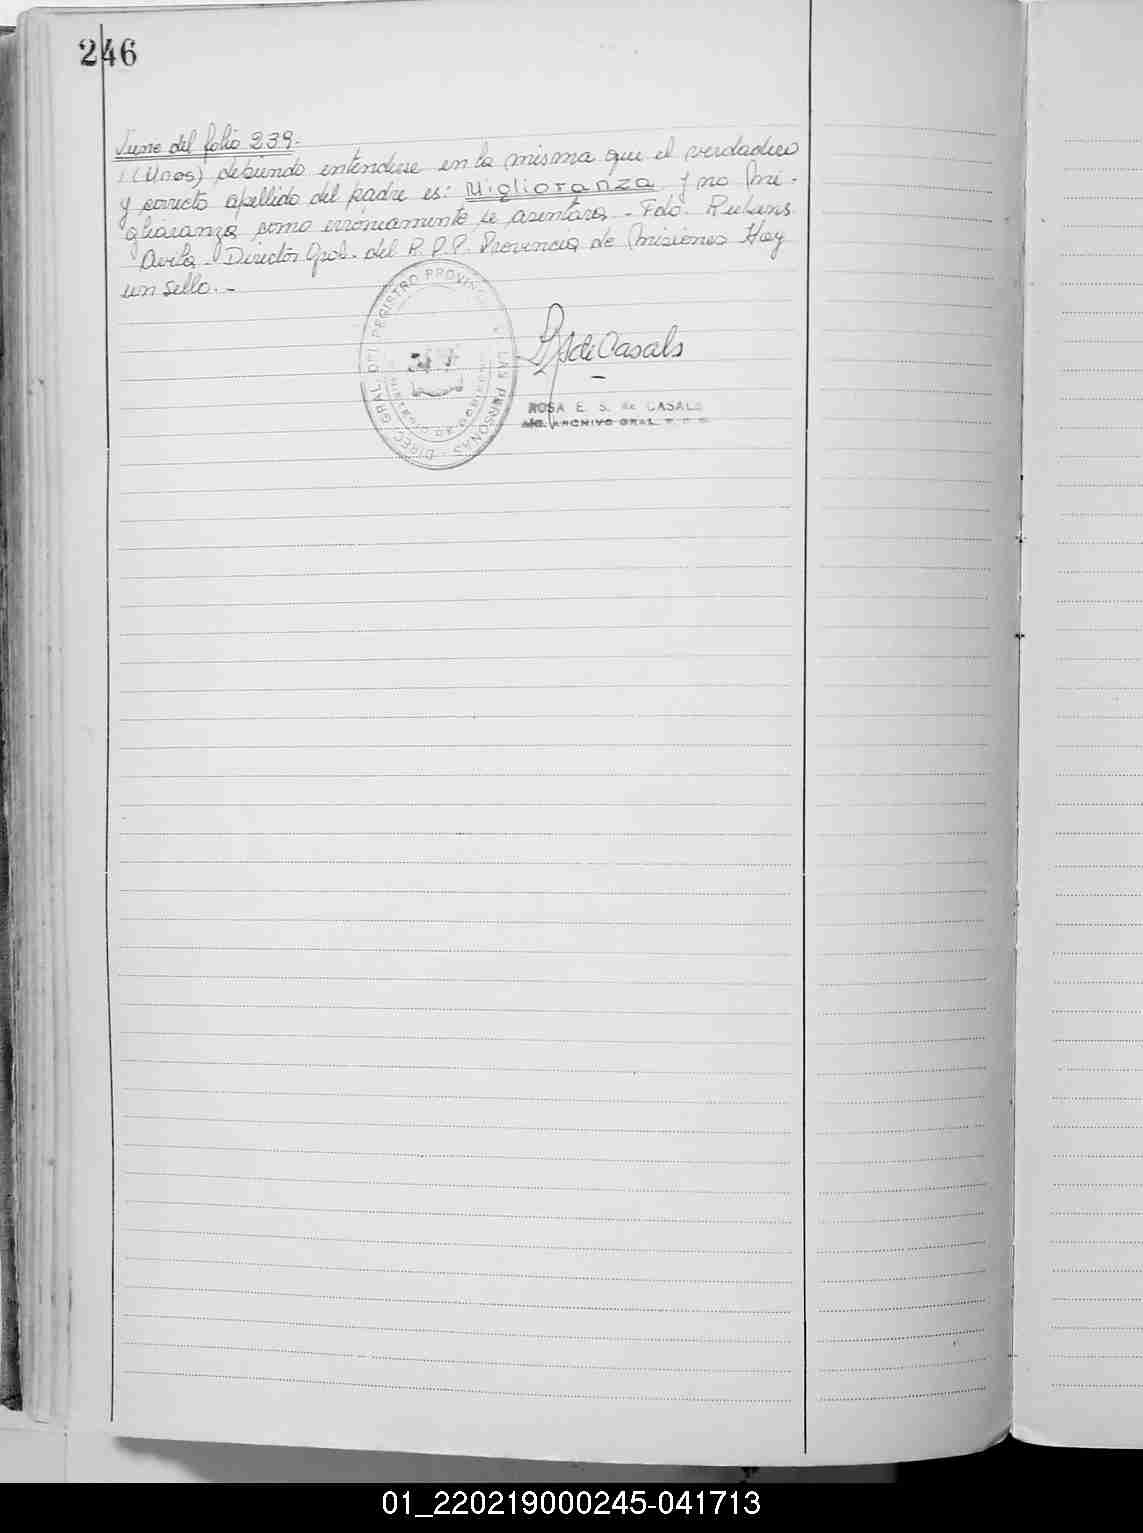 246
Viene del folio 239.-
(Unos) debiendo entenderse en la misma que el verdadero
y correcto apellido del padre es: Miglioranza y no Mi-
gliaranza como erroneamente se asentara.- Fdo. Rubens
Avila - Director Gral. del R.P.P. Provincia de Misiones Hay
un sello.-
DIREC. GRAL. DEL REGISTRO PROVINCIAL LAS PERSONAS
de Casals
ROSA E. S. de CASALS
ARCHIVO GRAL.
01_220219000245-041713